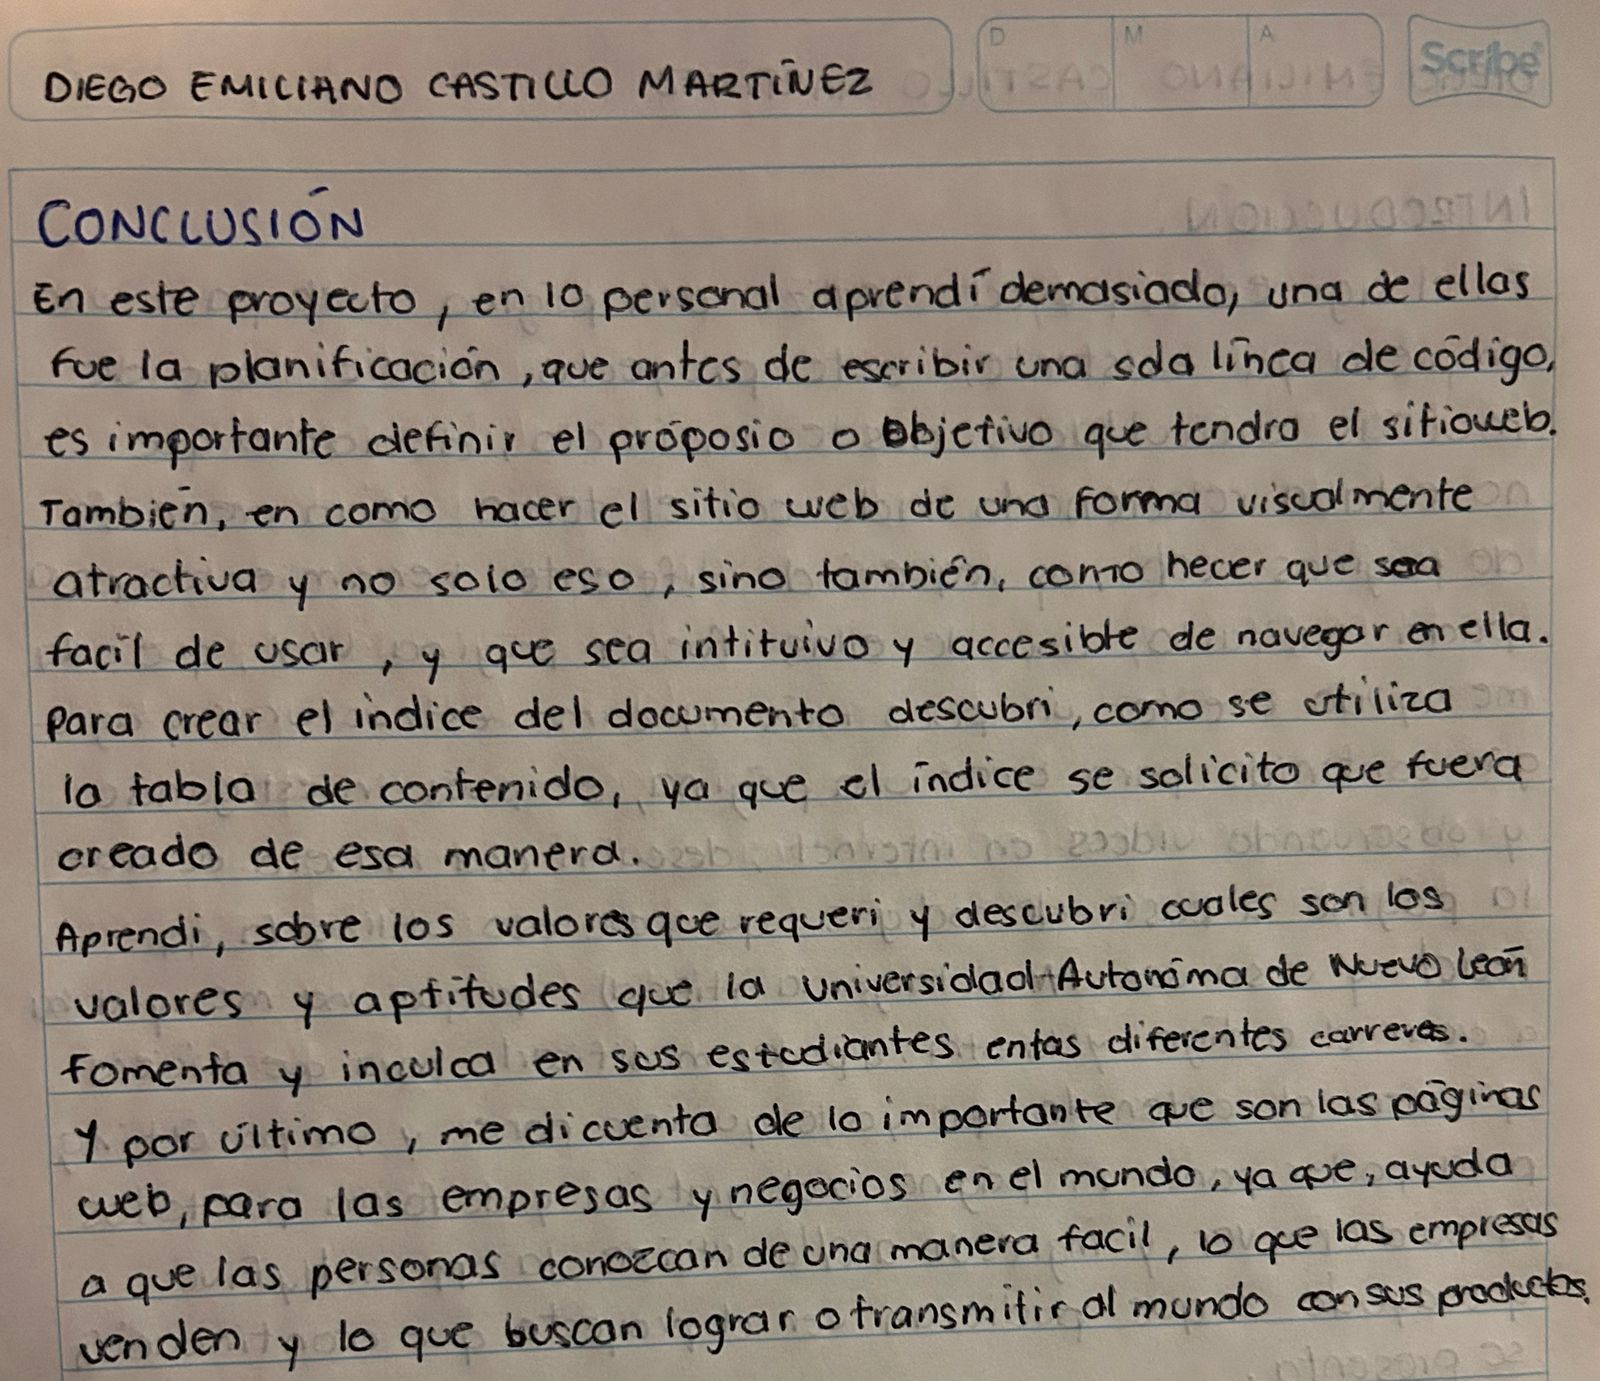 DIEGO EMILIANO CASTILLO MARTÍNEZ
D M A
Scribe
CONCLUSIÓN
En este proyecto, en lo personal aprendí demasiado, una de ellas
fue la planificación, que antes de escribir una sola línea de código,
es importante definir el próposio o objetivo que tendra el sitioweb.
Tambien, en como hacer el sitio web de una forma visualmente
atractiva y no solo eso, sino también, como hecer que sea
facil de usar, y que sea intituivo y accesible de navegar en ella.
Para crear el indice del documento descubri, como se utiliza
la tabla de contenido, ya que el índice se solicito que fuera
creado de esa manera.
Aprendi, sobre los valores que requeri y descubri cuales son los
valores y aptitudes que la Universidad Autonóma de Nuevo León
fomenta y inculca en sus estudiantes entas diferentes carreras.
Y por último, me di cuenta de lo importante que son las páginas
web, para las empresas y negocios en el mundo, ya que, ayuda
a que las personas conozcan de una manera facil, lo que las empresas
venden y lo que buscan lograr o transmitir al mundo con sus productos.